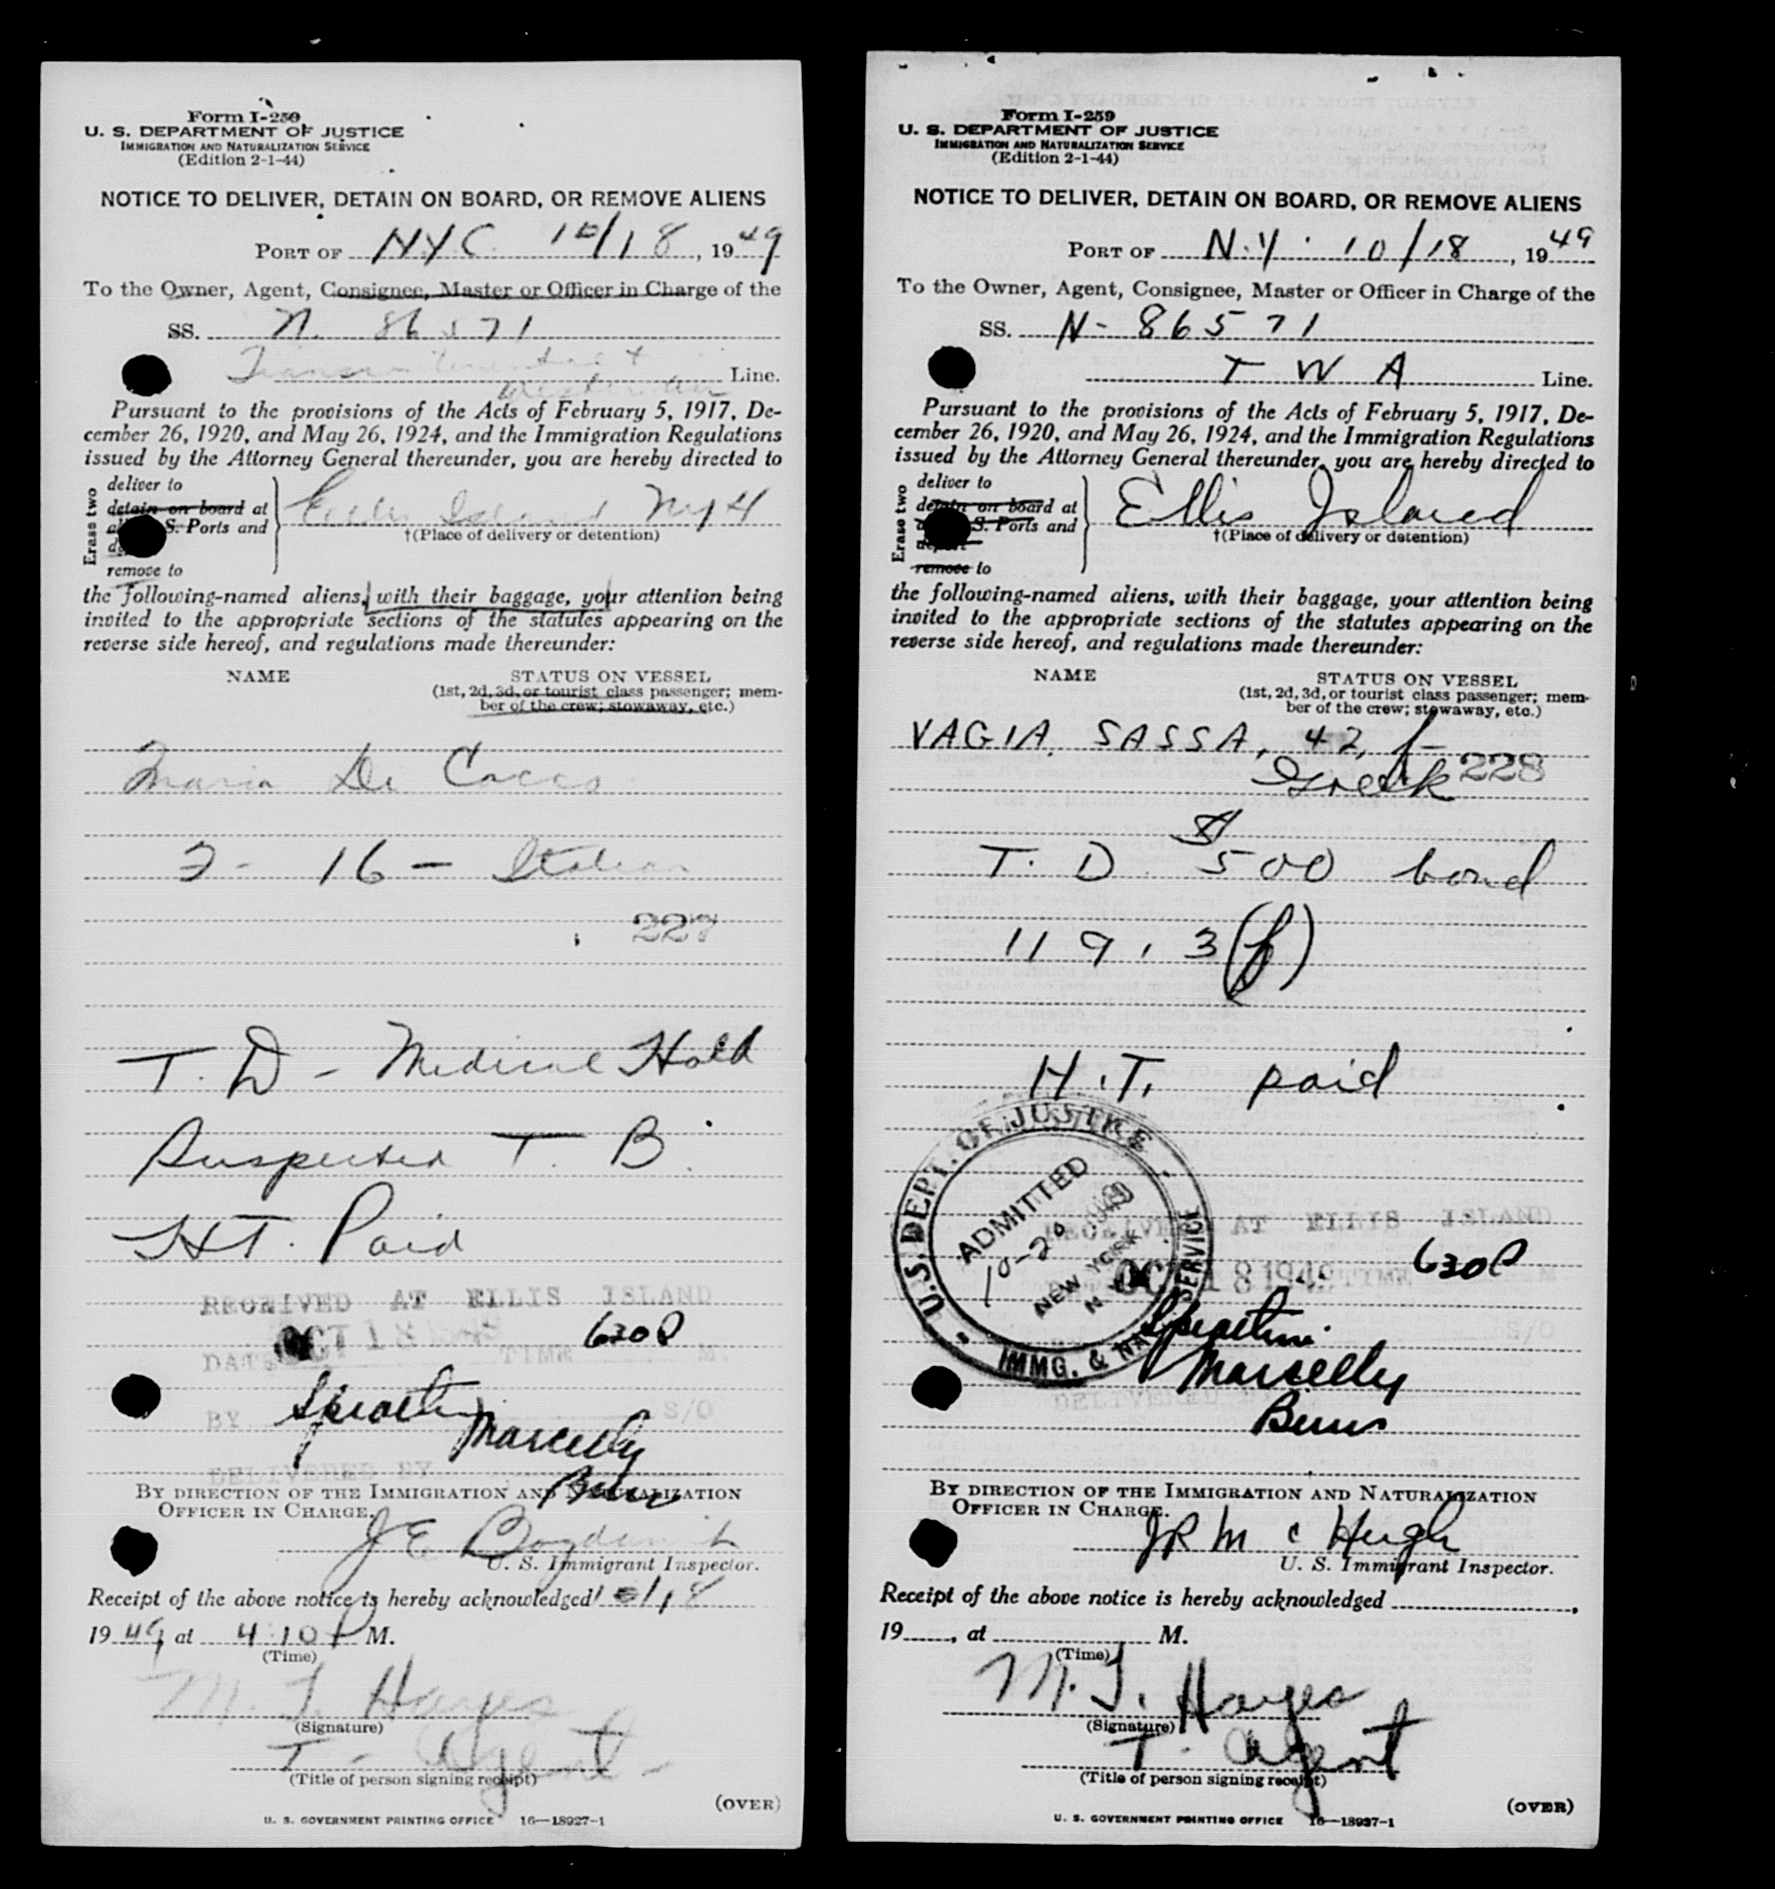 Form I-259
U. S. DEPARTMENT OF JUSTICE
IMMIGRATION AND NATURALIZATION SERVICE
(Edition 2-1-44)
NOTICE TO DELIVER, DETAIN ON BOARD, OR REMOVE ALIENS
PORT OF N.Y.C. 10/18, 1949
To the Owner, Agent, Consignee, Master or Officer in Charge of the
SS. N. 86571
Transcontinental &
Western Air Line.
Pursuant to the provisions of the Acts of February 5, 1917, De-
cember 26, 1920, and May 26, 1924, and the Immigration Regulations
issued by the Attorney General thereunder, you are hereby directed to
Erase two
deliver to
detain on board at
S. Ports and
remove to
Ellis Island NYH
†(Place of delivery or detention)
the following-named aliens, with their baggage, your attention being
invited to the appropriate sections of the statutes appearing on the
reverse side hereof, and regulations made thereunder:
NAME STATUS ON VESSEL
(1st, 2d, 3d, or tourist class passenger; mem-
ber of the crew; stowaway, etc.)
Maria De
16 - Italian
227
T. D - Medical Hold
Suspected T. B.
HT. Paid
RECEIVED AT ELLIS ISLAND
630P
DATE OCT 18 TIME M.
BY S/O
Marcelly
DELIVERED BY
BY DIRECTION OF THE IMMIGRATION AND NATURALIZATION
OFFICER IN CHARGE.
J E
U. S. Immigrant Inspector.
Receipt of the above notice is hereby acknowledged 10/18
1949, at 4:10 P M.
(Time)
M. J. Hayes
(Signature)
T - Agent
(Title of person signing receipt)
(OVER)
U. S. GOVERNMENT PRINTING OFFICE 16—18927-1
Form I-259
U. S. DEPARTMENT OF JUSTICE
IMMIGRATION AND NATURALIZATION SERVICE
(Edition 2-1-44)
NOTICE TO DELIVER, DETAIN ON BOARD, OR REMOVE ALIENS
PORT OF N.Y. 10/18, 1949
To the Owner, Agent, Consignee, Master or Officer in Charge of the
SS. N- 86571
T W A Line.
Pursuant to the provisions of the Acts of February 5, 1917, De-
cember 26, 1920, and May 26, 1924, and the Immigration Regulations
issued by the Attorney General thereunder, you are hereby directed to
Erase two
deliver to
detain on board at
S. Ports and
deport
remove to
Ellis Island
†(Place of delivery or detention)
the following-named aliens, with their baggage, your attention being
invited to the appropriate sections of the statutes appearing on the
reverse side hereof, and regulations made thereunder:
NAME STATUS ON VESSEL
(1st, 2d, 3d, or tourist class passenger; mem-
ber of the crew; stowaway, etc.)
VAGIA, SASSA, 42, f-
Greek 228
T. D. $500 bond
119.3(f)
H.T. paid
U.S. DEPT. OF JUSTICE
ADMITTED
10-20 1949
NEW YORK
N.Y.
IMMG. & NAT. SERVICE
RECEIVED AT ELLIS ISLAND
630P
OCT 18 1949 TIME M
S/O
Marcelly
DELIVERED
BY DIRECTION OF THE IMMIGRATION AND NATURALIZATION
OFFICER IN CHARGE.
JR McHugh
U. S. Immigrant Inspector.
Receipt of the above notice is hereby acknowledged
19 , at M.
(Time)
M. J. Hayes
(Signature)
T. Agent
(Title of person signing receipt)
(OVER)
U. S. GOVERNMENT PRINTING OFFICE 16—18927-1